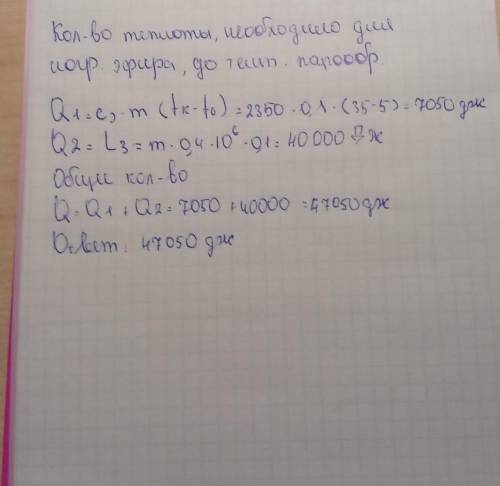 Кол-во теплоты, необходимо для
нагр. эфира, до темп. парообр.
Q1 = cэ·m (tк-t0) = 2350·0,1·(35-5) = 7050 дж
Q2 = Lэ = m·0,4·10⁶·0,1 = 40000 Дж
Общее кол-во
Q = Q1 + Q2 = 7050 + 40000 = 47050 дж
Ответ: 47050 дж